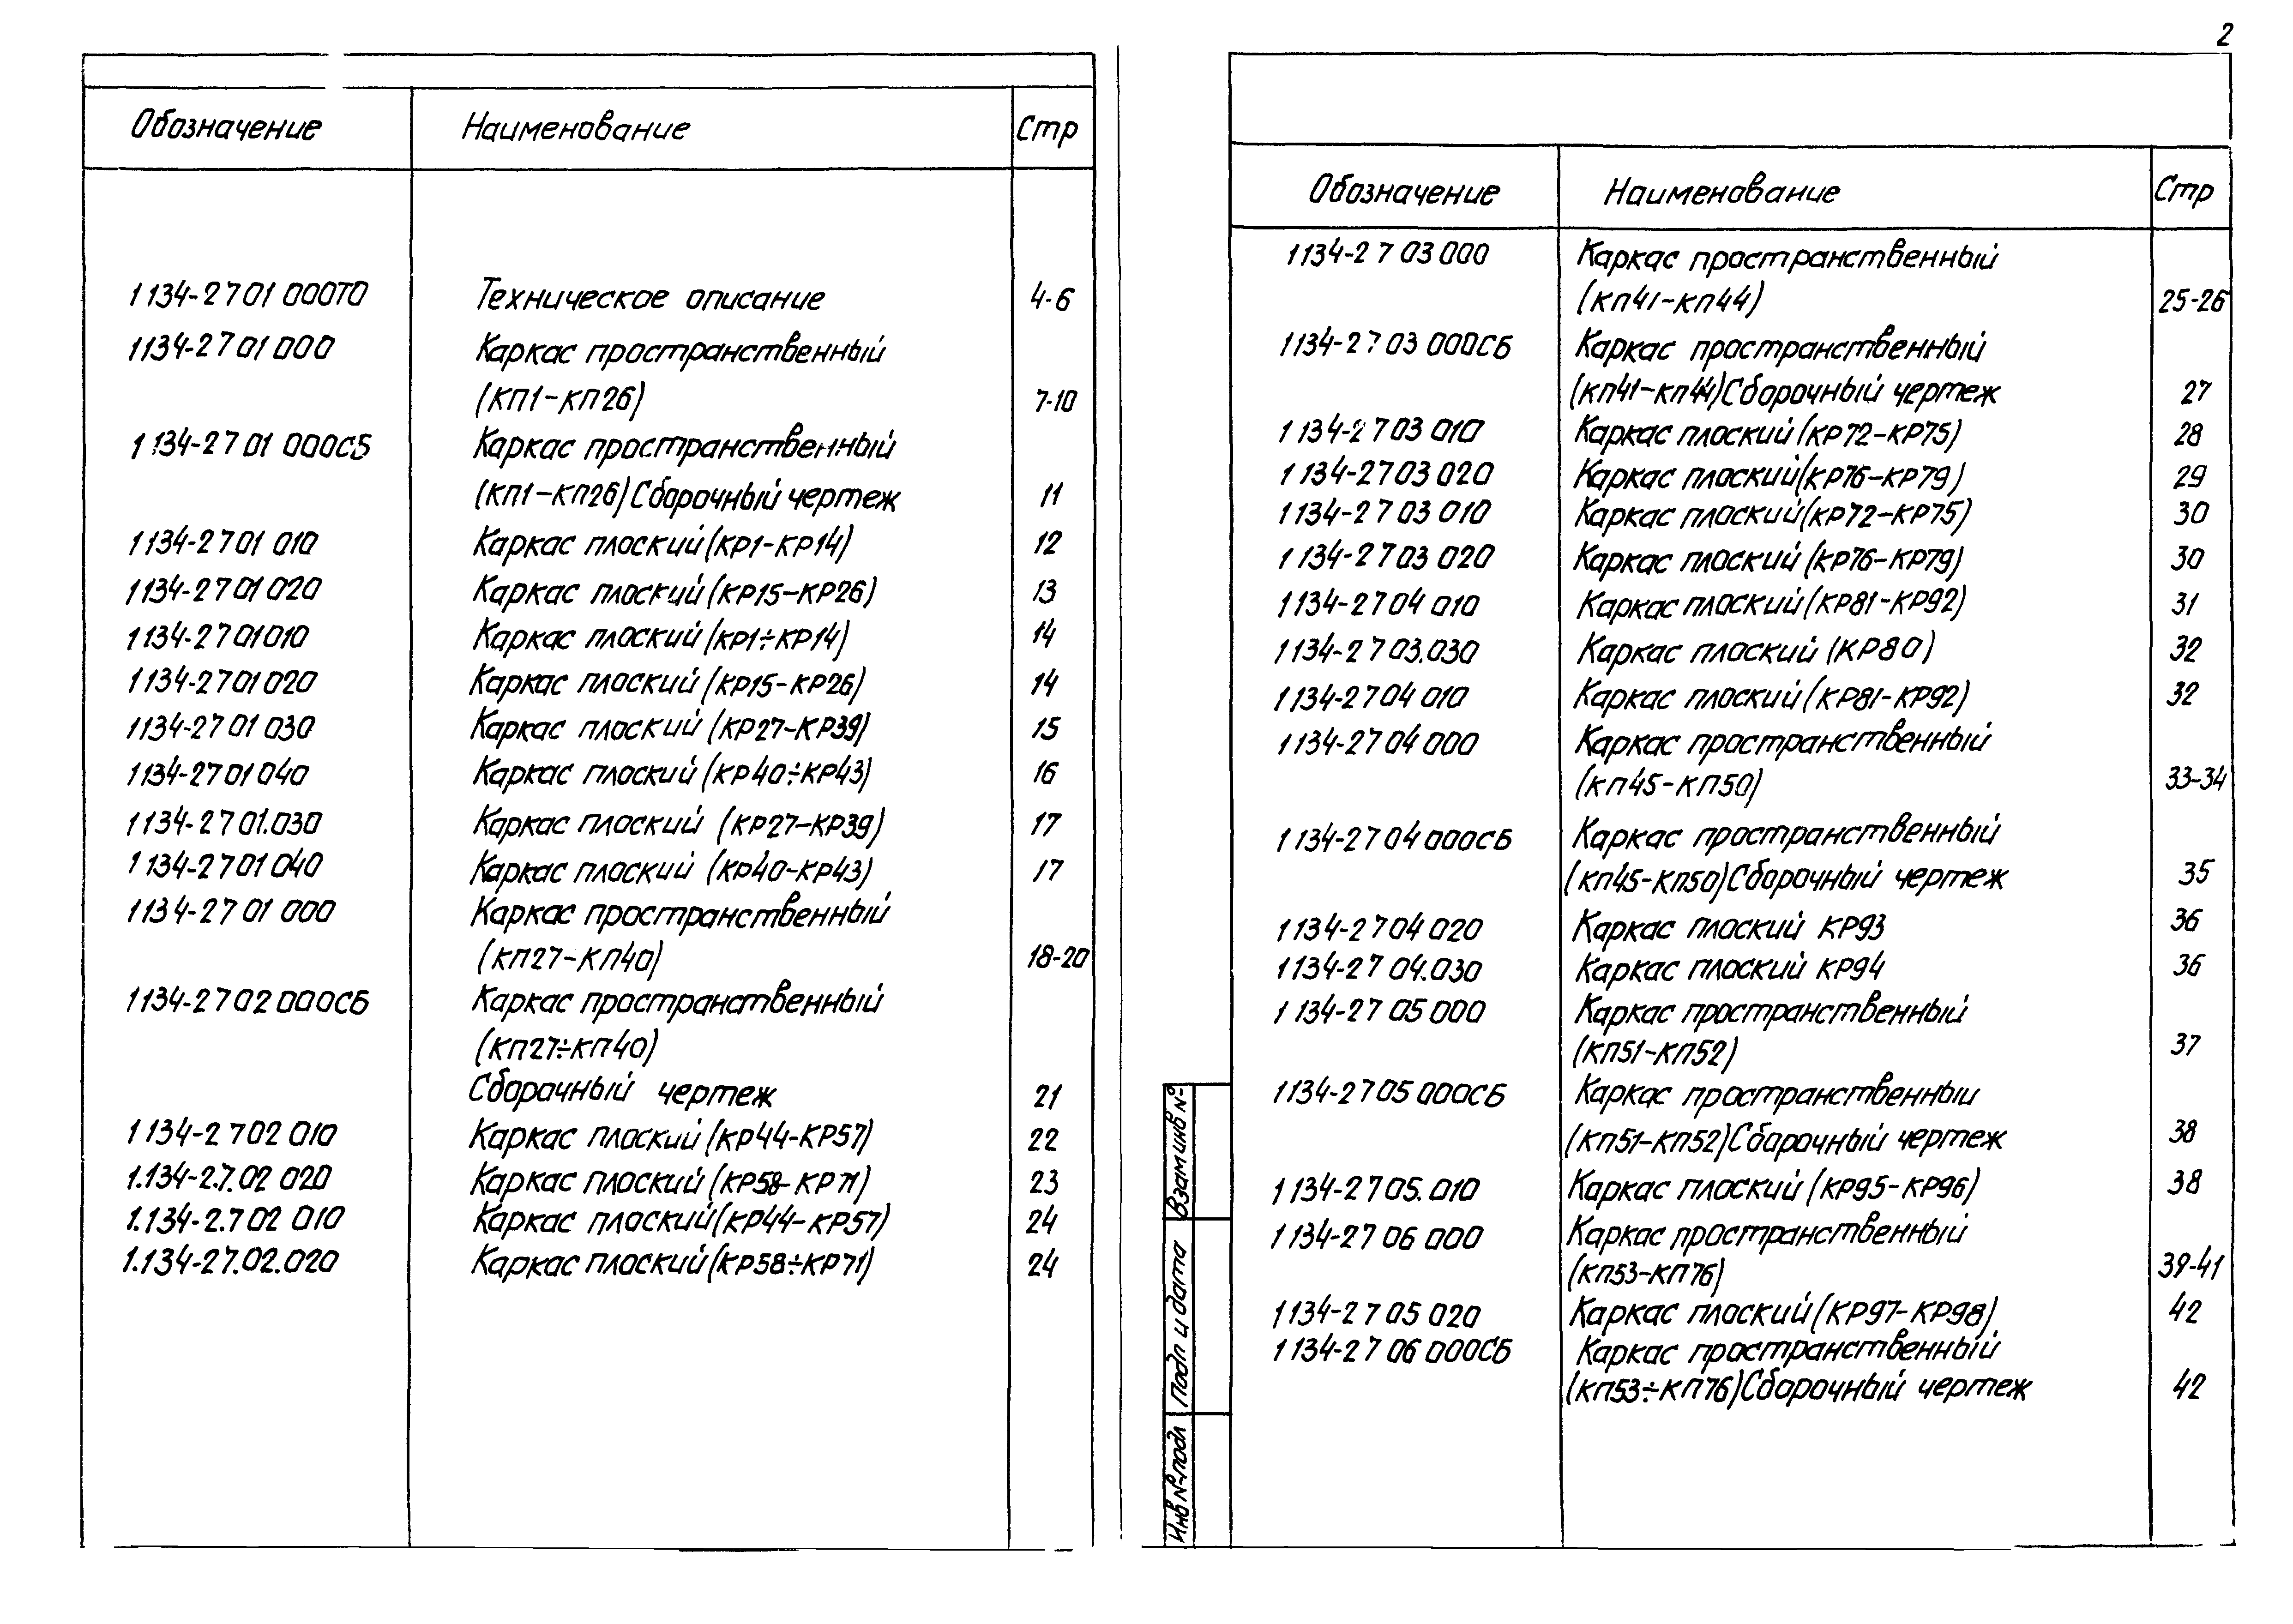 2
Обозначение Наименование Стр
1134-2701 000ТО Техническое описание 4-6
1134-2701000 Каркас пространственный
(КП1-КП26) 7-10
1134-2701 000СБ Каркас пространственный
(КП1-КП26)Сборочный чертеж 11
1134-2701 010 Каркас плоский(КР1-КР14) 12
1134-2701020 Каркас плоский(КР15-КР26) 13
1134-2701010 Каркас плоский(КР1÷КР14) 14
1134-2701020 Каркас плоский(КР15-КР26) 14
1134-2701 030 Каркас плоский (КР27-КР39) 15
1134-2701040 Каркас плоский (КР40÷КР43) 16
1134-2701.030 Каркас плоский (КР27-КР39) 17
1134-2701 040 Каркас плоский (КР40-КР43) 17
1134-2701 000 Каркас пространственный
(КП27-КП40) 18-20
1134-2702 000СБ Каркас пространственный
(КП27÷КП40)
Сборочный чертеж 21
1134-2 702 010 Каркас плоский(КР44-КР57) 22
1.134-2.7.02 020 Каркас плоский(КР58-КР71) 23
1.134-2.702 010 Каркас плоский(КР44-КР57) 24
1.134-27.02.020 Каркас плоский(КР58÷КР71) 24
Обозначение Наименование Стр
1134-2 7 03 000 Каркас пространственный
(КП41-КП44) 25-26
1134-2703 000СБ Каркас пространственный
(КП41-КП44)Сборочный чертеж 27
1134-2703 010 Каркас плоский(КР72-КР75) 28
1134-2703 020 Каркас плоский(КР76-КР79) 29
1134-2703 010 Каркас плоский(КР72-КР75) 30
1134-2703 020 Каркас плоский (КР76-КР79) 30
1134-2704 010 Каркас плоский(КР81-КР92) 31
1134-2703.030 Каркас плоский (КР80) 32
1134-2704 010 Каркас плоский(КР81-КР92) 32
1134-2704 000 Каркас пространственный
(КП45-КП50) 33-34
1134-2704 000СБ Каркас пространственный
(КП45-КП50)Сборочный чертеж 35
1134-2704 020 Каркас плоский КР93 36
1134-27 04.030 Каркас плоский КР94 36
1134-27 05 000 Каркас пространственный
(КП51-КП52) 37
1134-2705 000СБ Каркас пространственный
(КП51-КП52)Сборочный чертеж 38
1134-2705.010 Каркас плоский (КР95-КР96) 38
1134-27 06 000 Каркас пространственный
(КП53-КП76) 39-41
1134-2705 020 Каркас плоский(КР97-КР98) 42
1134-27 06 000СБ Каркас пространственный
(КП53÷КП76)Сборочный чертеж 42
Взам инв №
Подп и дата
Инв № подл